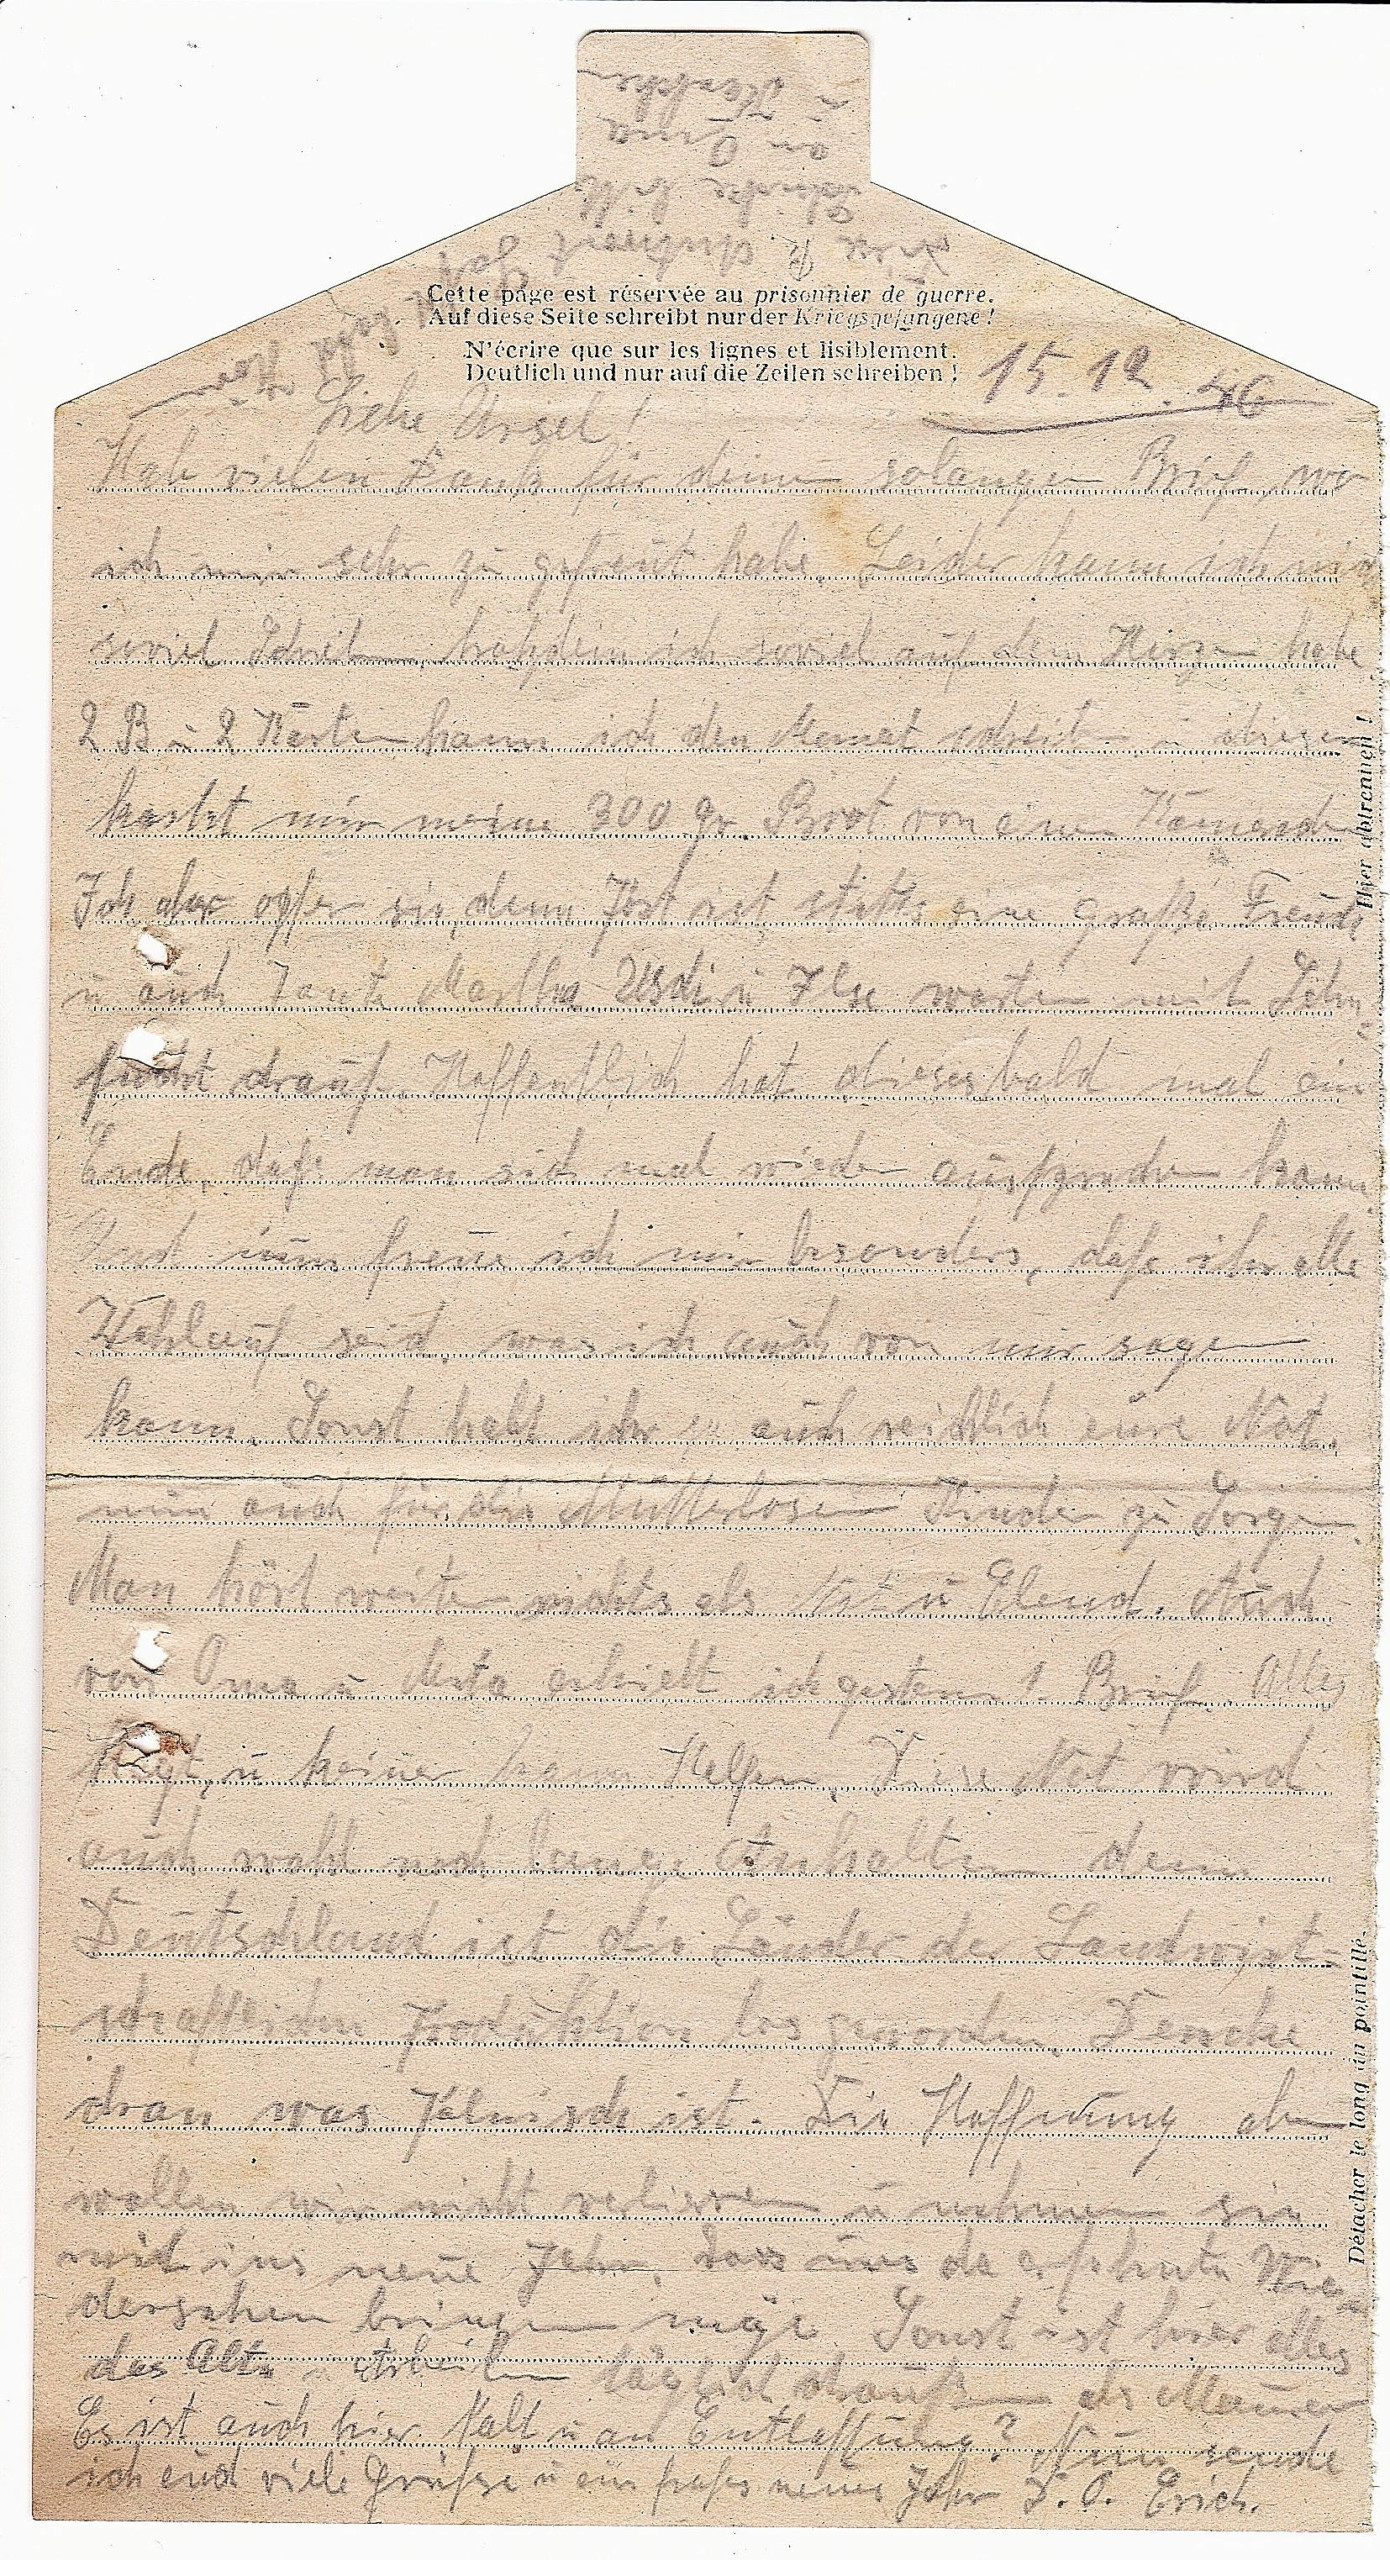 Cette page est réservée au prisonnier de guerre.
Auf diese Seite schreibt nur der Kriegsgefangene!
N'écrire que sur les lignes et lisiblement.
Deutlich und nur auf die Zeilen schreiben!
15.12.46
Liebe Ursel!
Hab vielen Dank für deinen solangen Brief, wo
ich mir sehr zu gefreut habe. Leider kann ich nie
soviel Schreiben, trotzdem ich soviel auf dem Herzen habe
2 B u 2 Karten kann ich den Monat schreiben u diesen
kostet mir meine 300 gr. Brot von einen Kameraden
Ich aber opfer sie, denn Post ist stetts eine große Freude
u auch Tante Martha Usdi u Ilse warten mit Sehn-
sucht drauf. Hoffentlich hat dieses bald mal ein
Ende, daß man sich mal wieder aussprechen kann.
Und nun freue ich mir besonders, daß ihr alle
Wohlauf seid, was ich auch von mir sagen
kann. Sonst habt ihr ja auch reichlich eure Not,
nun auch für die Mutterlosen Kinder zu Sorgen.
Man hört weiter nichts als Not u Elend. Auch
von Oma u erhielt ich gestern 1. Brief. Alles
klagt u keiner kann Helfen. Diese Not wird
auch wohl noch lange Anhalten denn
Deutschland ist die Länder der Landwirt-
schaftlichen Produktion los geworden. Dencke
dran was Polnisch ist. Die Hoffnung aber
wollen wir nicht verlieren u nehmen sie
mit ins neue Jahr, dass uns da ersehnte Wie-
dersehen bringen möge. Sonst ist hier alles
das Alte u Arbeiten täglich draußen als Maurer
Es ist auch hier Kalt u an Entlassung? Nun sende
ich euch viele Grüße u ein frohes neues Jahr D. O. Erich.
Hier abtrennen!
Détacher le long du pointillé.
Diese R. Antwort
Schicke bitte
an Oma
u